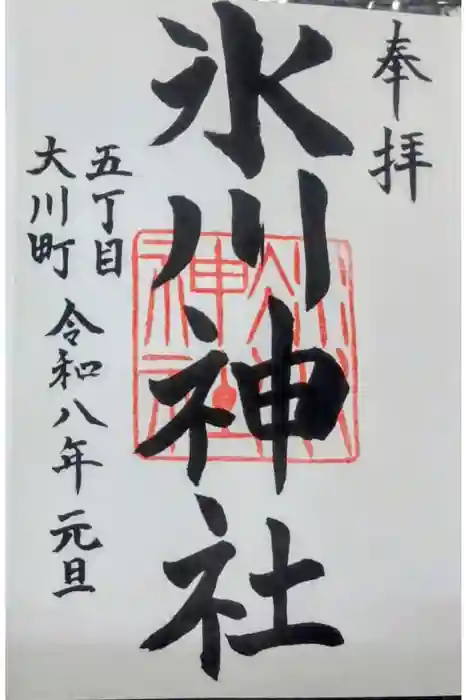 奉拝
氷川神社
五丁目
大川町
令和八年 元旦
氷川神社